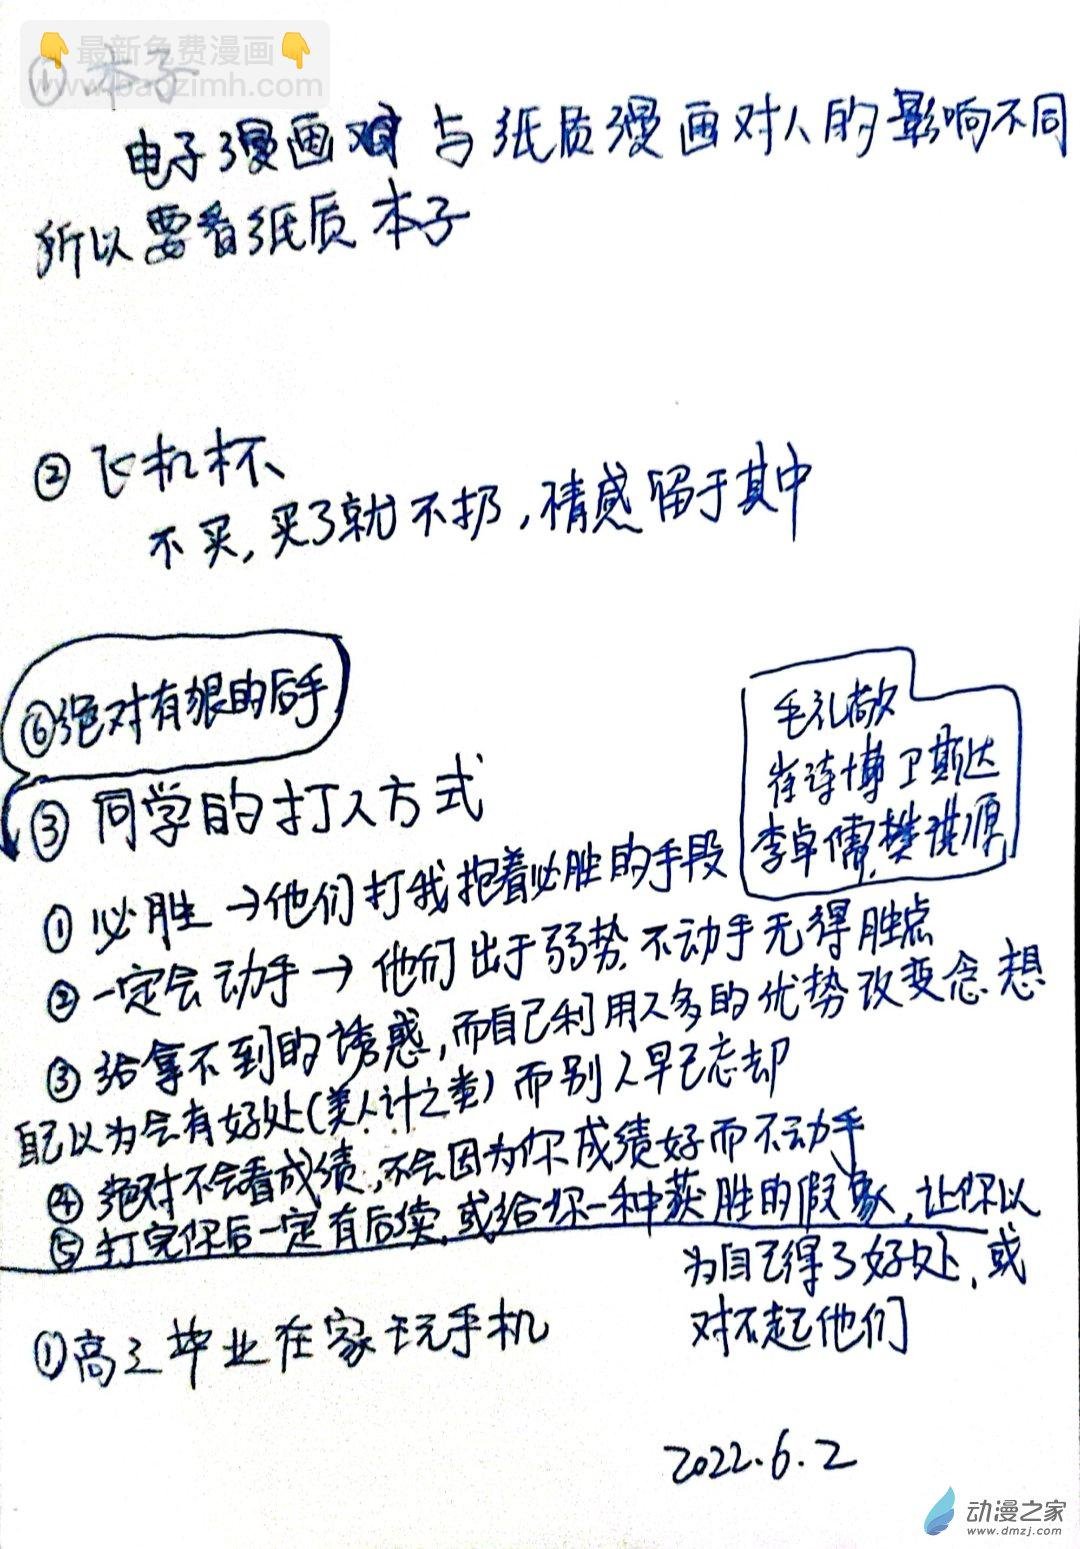 👇最新免费漫画👇
www.baozimh.com
① 本子
电子漫画对与纸质漫画对人的影响不同
所以要看纸质本子
② 飞机杯
不买,买了就不扔,情感留于其中
⑥绝对有狠的后手
毛礼敬
崔诗博 卫斯达
李卓儒,樊淇源
③ 同学的打人方式
① 必胜→他们打我抱着必胜的手段
② 一定会动手→他们出于弱势,不动手无得胜点
③ 给拿不到的诱惑,而自己利用人多的优势改变念想
自己以为会有好处(美人计之类)而别人早已忘却
④ 绝对不会看成绩,不会因为你成绩好而不动手
⑤ 打完你后一定有后续,或给你一种获胜的假象,让你以
为自己得了好处,或
对不起他们
①高三毕业在家玩手机
2022.6.2
动漫之家
www.dmzj.com